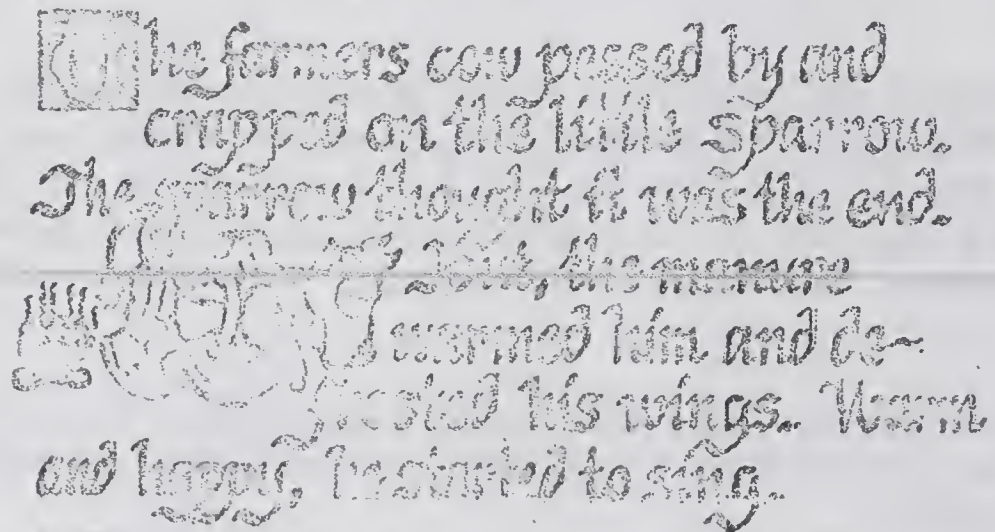 The farmers cow passed by and
crapped on the little Sparrow.
The sparrow thought it was the end.
But, the manure
warmed him and de-
frosted his wings. Warm
and happy, he started to sing.